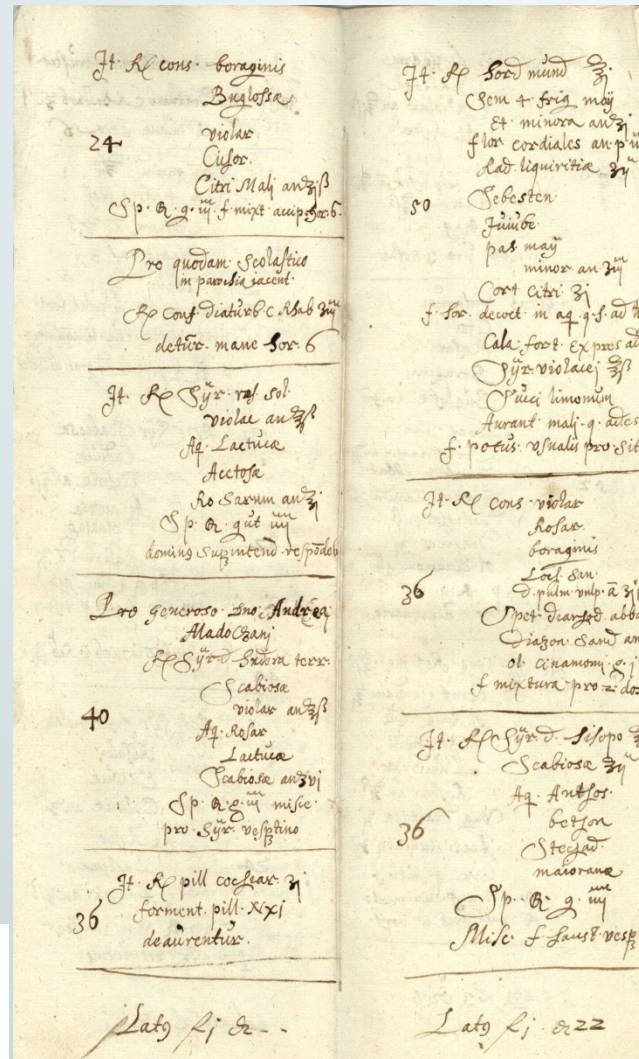 It. Rx cons. boraginis
Buglossæ
24
violar
Cichor.
Citri Mali an ʒiß
Sp. R. g. iiii f. mixt accip. hor. 6.
Pro quodam Scolastico
in parochia jacent.
Rx Conf. diaturb. c Rhab ʒiii
detur. mane hor. 6
It. Rx Sÿr. ros sol.
violac an ℥ß
Aq. Lactucæ
Acetosæ
Rosarum an ℥i
Sp. R. gut iiii
dominus Supintend respōdeb
Pro generoso dno Andrea
Rx Sÿr. d terr.
Scabiosæ
violar an ℥ß
40
Aq. Rosar
Lactucæ
Scabiosæ an ʒvi
Sp. R. g. iiii misce
pro Sÿr. vesptino
It. Rx pill cochiar. ʒi
forment. pill. XXI
36
deaurentur.
Latus fi
It. Rx hord mund ℥i
Sem 4 frig maÿ
Et minora an ʒi
flor cordiales an. p. ii
Rad. liquiritiæ ʒii
50
Sebesten
Juiube
pas maÿ
minor an ʒiii
Cort Citri ʒi
f. hor. decoct in aq. q. s. ad
Cala. fort. Expres ad
Sÿr. violacej ℥ß
Succi limonum
Aurant mali. q. ad es
f. potus. vsualis pro Sit
It. Rx cons. violar
Rosar.
boraginis
Loch. San.
36
d. pulm. vulp. ā ʒii
Spec. abba
Sand an
ol. cinamomi g. i
f mixtura pro 2 dos
It. Rx Sÿr. d. hisopo
Scabiosæ ʒii
Aq. Anthos.
beton
36
Stechad.
maioranæ
Sp. R. g. iiii
Misc. f haust. vesp
Latus fi 22